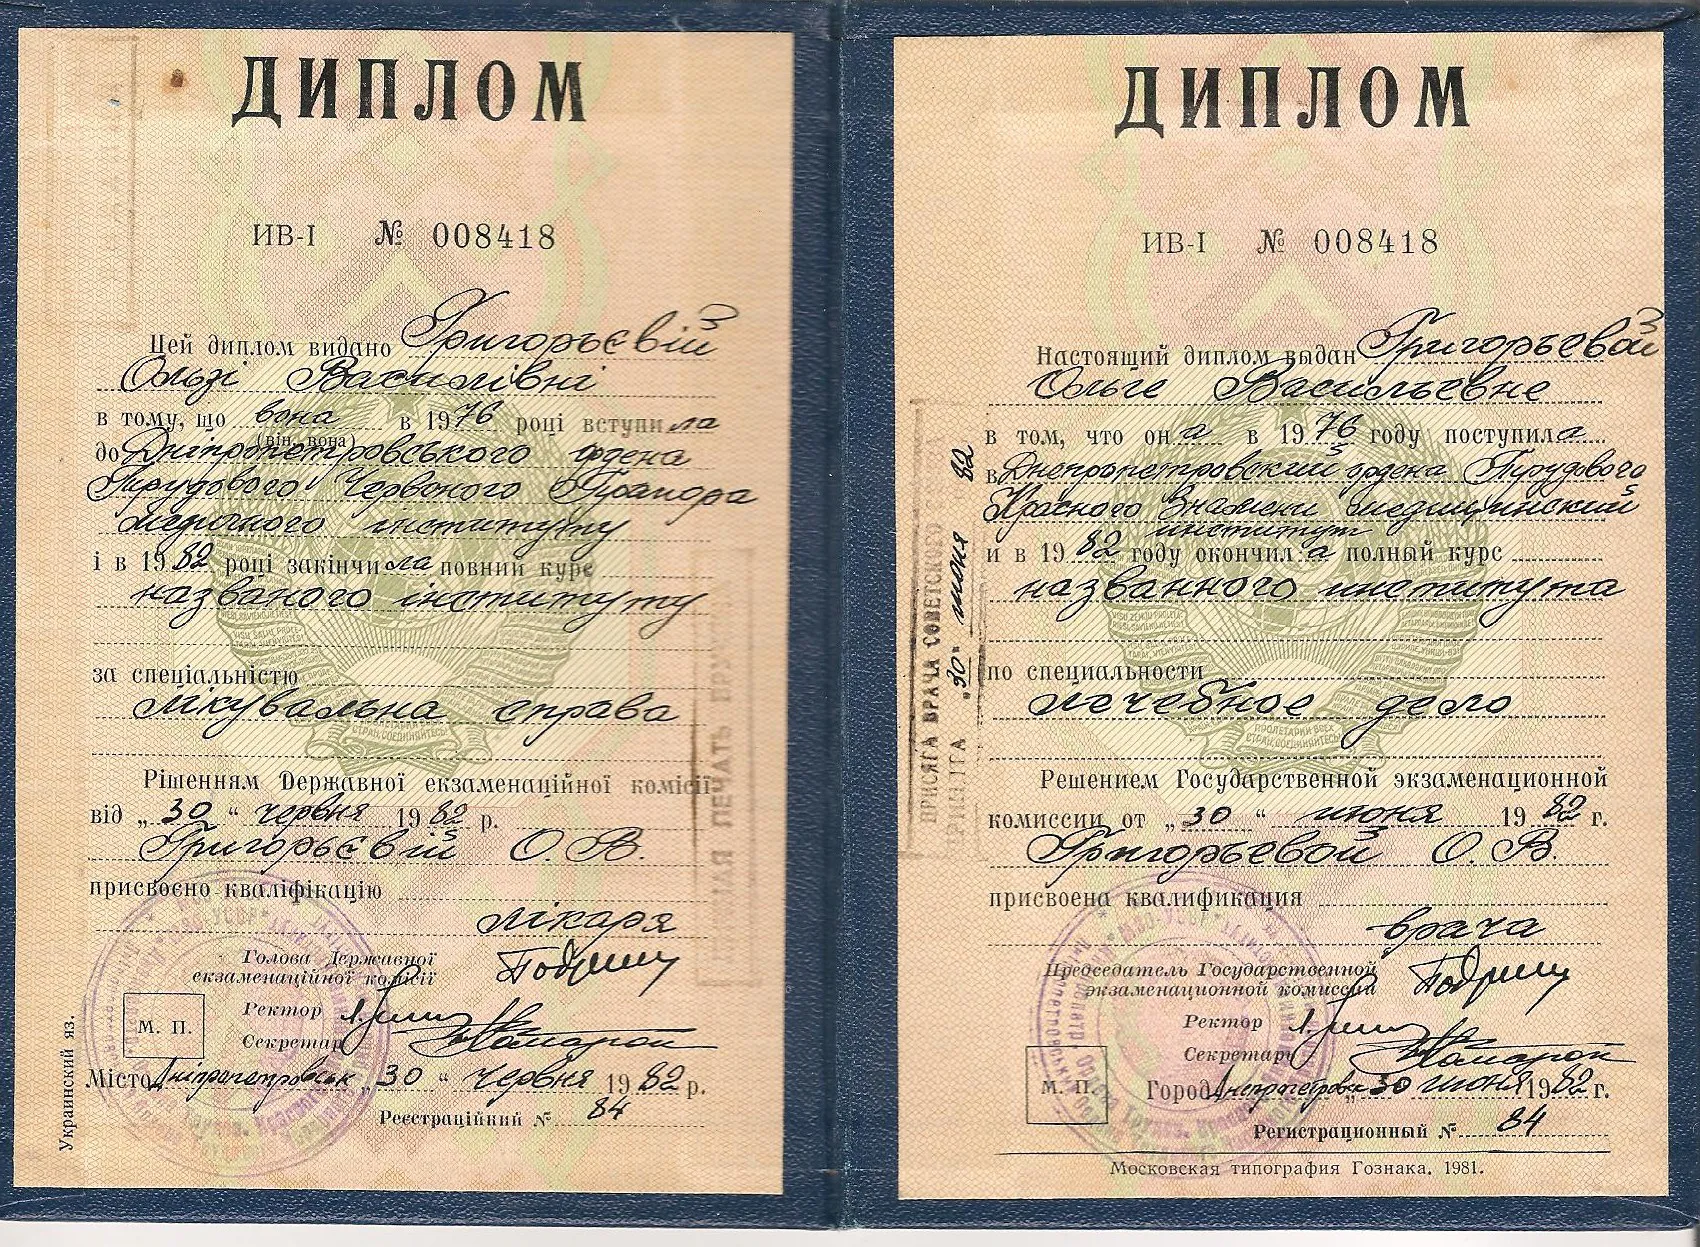 ДИПЛОМ
ИВ-I № 008418
Цей диплом видано Григорьєвій
Ользі Василівні
в тому, що вона в 1976 році вступила
(він, вона)
до Дніпропетровського ордена
Трудового Червоного Прапора
медичного інституту
і в 1982 році закінчила повний курс
названого інституту
за спеціальністю
лікувальна справа
Рішенням Державної екзаменаційної комісії
від „30“ червня 1982 р.
Григорьєвій О. В.
присвоєно кваліфікацію
лікаря
Голова Державної
екзаменаційної комісії
Ректор
М. П.
Секретар
Місто Дніпропетровськ „30“ червня 1982 р.
Реєстраційний № 84
Украинский яз.
ДИПЛОМ
ИВ-I № 008418
Настоящий диплом выдан Григорьевой
Ольге Васильевне
в том, что она в 1976 году поступила
в Днепропетровский ордена Трудового
Красного Знамени медицинский
институт
и в 1982 году окончила полный курс
названного института
по специальности
лечебное дело
Решением Государственной экзаменационной
комиссии от „30“ июня 1982 г.
Григорьевой О. В.
присвоена квалификация
врача
Председатель Государственной
экзаменационной комиссии
Ректор
Секретарь
М. П.
Город Днепропетровск „30 июня 1982 г.
Регистрационный № 84
Московская типография Гознака. 1981.
ПРИСЯГА ВРАЧА СОВЕТСКОГО
„30“ июня 82